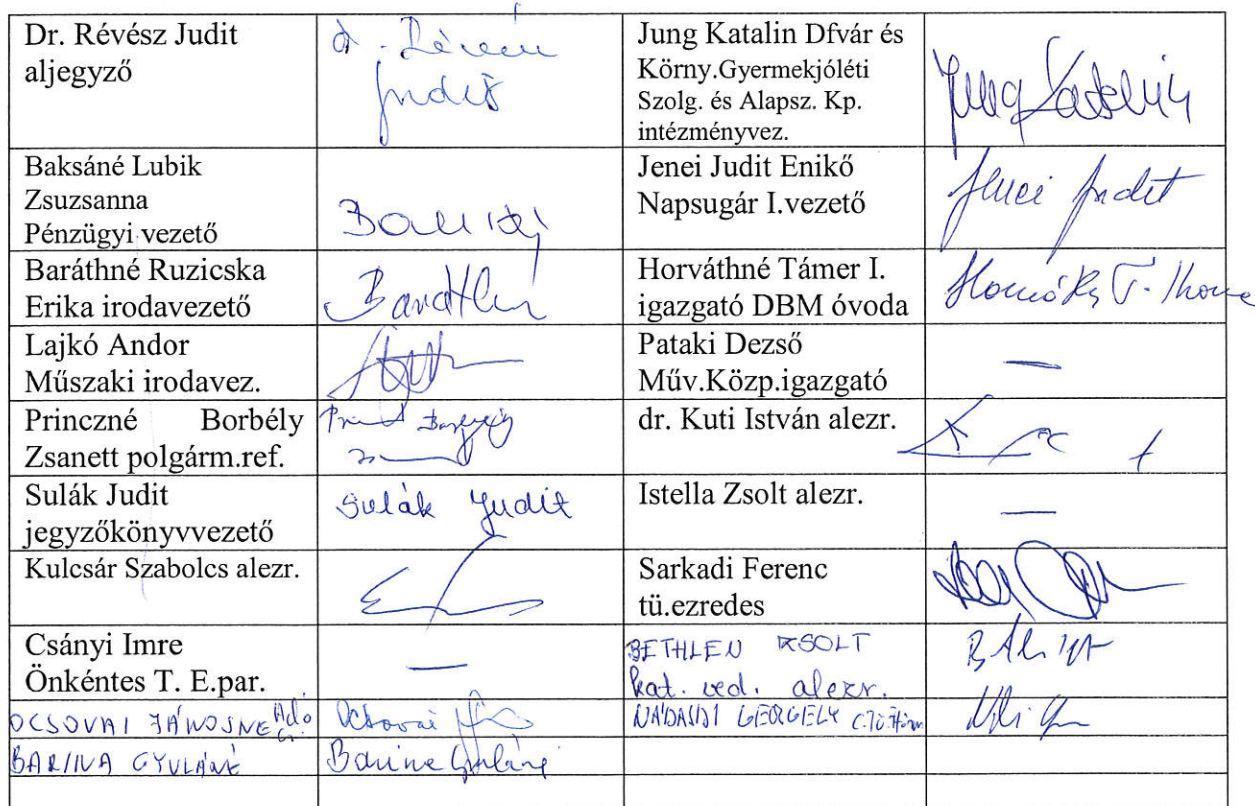 Dr. Révész Judit
aljegyző
Judit
Jung Katalin Dfvár és
Körny.Gyermekjóléti
Szolg. és Alapsz. Kp.
intézményvez.
Jung Katalin
Baksáné Lubik
Zsuzsanna
Pénzügyi vezető
Jenei Judit Enikő
Napsugár I.vezető
Jenei Judit
Baráthné Ruzicska
Erika irodavezető
Horváthné Támer I.
igazgató DBM óvoda
Lajkó Andor
Műszaki irodavez.
Pataki Dezső
Műv.Közp.igazgató
—
Princzné Borbély
Zsanett polgárm.ref.
dr. Kuti István alezr.
Sulák Judit
jegyzőkönyvvezető
Sulák Judit
Istella Zsolt alezr.
—
Kulcsár Szabolcs alezr.
Sarkadi Ferenc
tü.ezredes
Csányi Imre
Önkéntes T. E.par.
—
BETHLEN ZSOLT
kat. ved. alezr.
OCSOVAI JÁNOSNÉ Adó
Ocsovai
NÁDASDI GERGELY
BARINA GYULÁNÉ
Barina Gyuláné